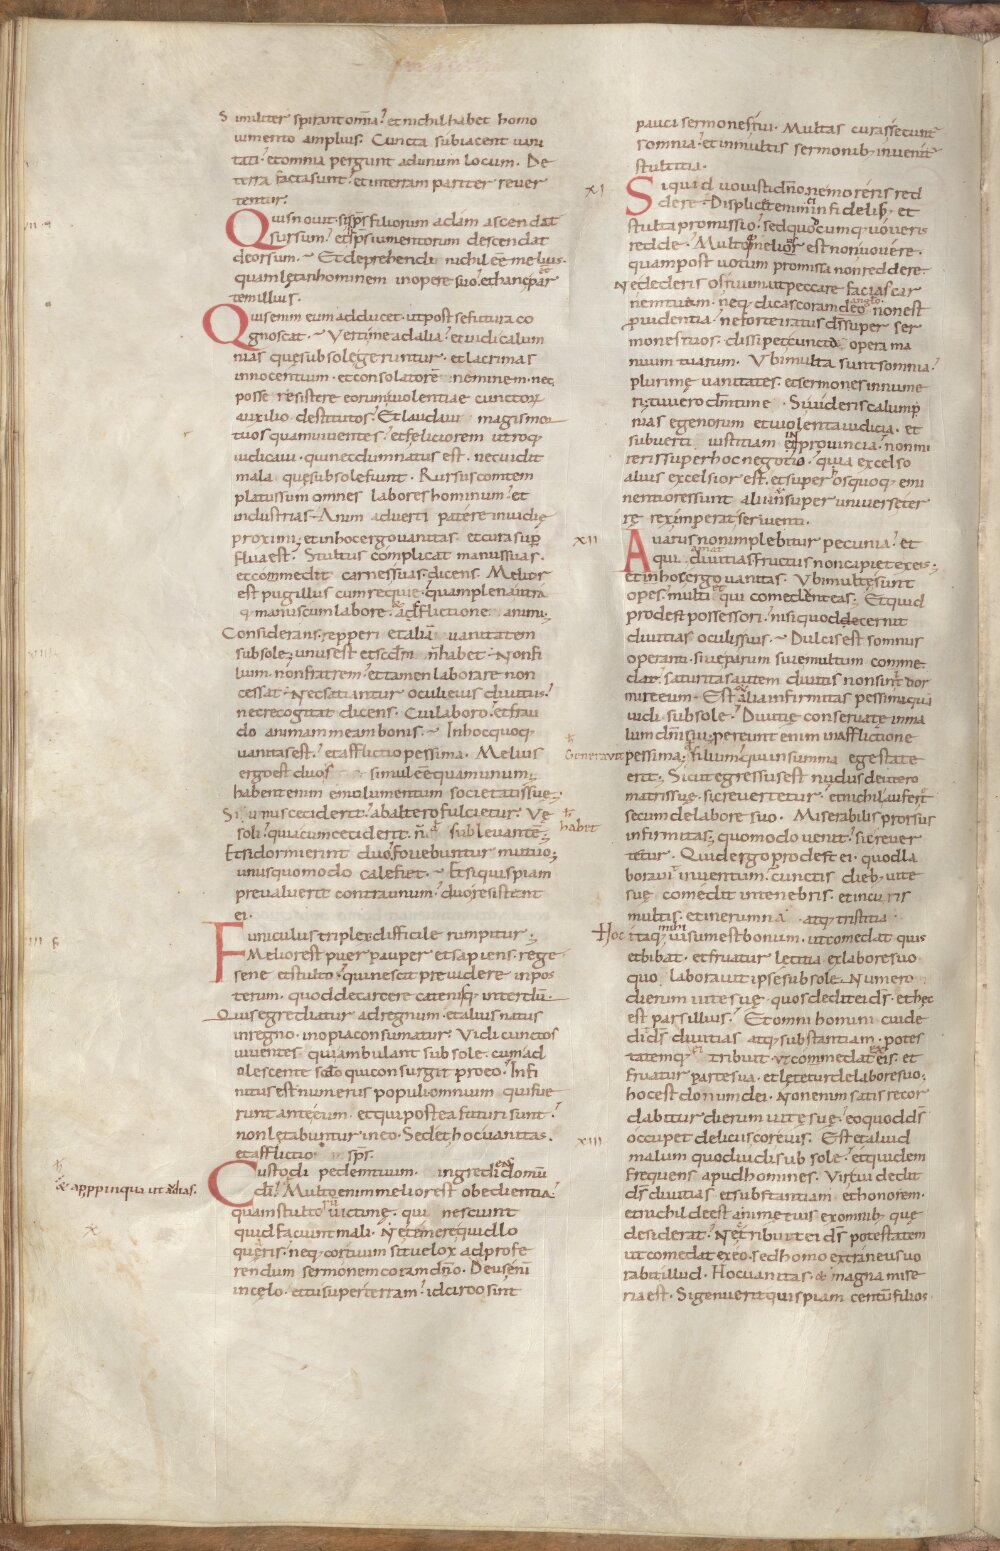 Similiter spirant om̄ia? et nichil habet homo
iumento amplius. Cuncta subiacent uani
tati. et omnia pergunt ad unum locum. De
terra facta sunt? et in terram pariter reuer
tentur.
Quis nouit si sp̄s filiorum adam ascendat
sursum? et sp̄s iumentorum descendat
deorsum. Et deprehendi nichil eē melius.
quam lętari hominem in opere suo. et hanc par
tem illius.
Quis enim eum adducet. ut post se futura co
gnoscat. Verti me ad alia? et uidi calum
nias quę sub sole geruntur. et lacrimas
innocentium. et consolatorē neminem. nec
posse resistere eorum uiolentiae cunctorū
auxilio destitutos. Et laudaui magis mor
tuos quam uiuentes? et feliciorem utroq;
iudicaui. qui necdum natus est. nec uidit
mala quę sub sole fiunt. Rursus contem
platus sum omnes labores hominum? et
industrias. Anim aduerti patere inuidię
proximi; et in hoc ergo uanitas et cura sup
flua est. Stultus complicat manus suas.
et commedit carnes suas. dicens. Melior
est pugillus cum requie. quam plena utra
q; manus cum labore. & adflictione animi.
Considerans repperi et aliā uanitatem
sub sole; unus est et scdm n̄ habet. Non fi
lium. non fratrem. et tamen laborare non
cessat. Nec satiantur oculi eius diuitiis?
nec recogitat dicens. Cui laboro. et frau
do animam meam bonis. In hoc quoq;
uanitas est? et afflictio pessima. Melius
ergo est duos simul eē quam unum;
habent enim emolumentum societatis suę;
Si unus ceciderit? ab altero fulcietur. Vę
soli? quia cum ceciderit. n̄ subleuantē;
habet
Et si dormierint duo? fouebuntur mutuo;
unus quomodo calefiet. Et si quispiam
preualuerit contra unum? duo resistent
ei.
Funiculus triplex difficile rumpitur;
Melior est puer pauper et sapiens. rege
sene et stulto. qui nescit preuidere in pos
terum. quod de carcere catenisq; interdū.
Quis egrediatur ad regnum. et alius natus
in regno. inopia consumatur. Vidi cunctos
uiuentes qui ambulant sub sole. cum ad
olescente scdo qui consurgit pro eo. Infi
nitus est numerus populi omnium qui fue
runt ante eum. et qui postea futuri sunt?
non lętabuntur in eo. Sed et hoc uanitas.
et afflictio sp̄s.
Custodi pedem tuum. ingrediens domū
di? Multo enim melior est obedientia
& appinqua ut audias.
quam stultorū uictimę. qui nesciunt
quid faciunt mali. Ne temere quid lo
quaris. neq; cor tuum sit uelox ad profe
rendum sermonem coram dn̄o. Deus enī
in cęlo. et tu super terram? idcirco sint
pauci sermones tui. Multas curas secuntᵉ
somnia? et in multis sermonib; inuenit
stultitia.
XI
Si quid uouisti dn̄o ne moreris red
dere. Displicet enim ei infidelis. et
stulta promissio? sed quodcumq; uoueris
redde. Multoq; melior est non uouere.
quam post uotum promissa non reddere.
Ne dederis os tuum ut peccare facias car
nem tuam. neq; dicas coram anglo. non est
prudentia? ne forte iratus ds̄ super ser
mones tuos. dissipet cuncta opera ma
nuum tuarum. Vbi multa sunt somnia?
plurimę uanitates. et sermones innume
ri; tu uero dm̄ time. Si uideris calump
nias egenorum et uiolenta iudicia. et
subuerti iustitiam in prouincia. non mi
reris super hoc negotio. quia excelso
alius excelsior est. et super hos quoq; emi
nentiores sunt alii. insuper uniuersę ter
rę rex imperat seruienti.
XII
Auarus non implebitur pecunia? et
qui amat diuitias fructus non capiet ex eis;
et in hoc ergo uanitas. Vbi multę sunt
opes. multi et qui comedent eas. Et quid
prodest possessori. nisi quod decernit
diuitias oculis suis. Dulcis est somnus
operanti. siue parum siue multum comme
dat. saturitas autem diuitis non sinit dor
mire eum. Est & alia infirmitas pessima quā
uidi sub sole? Diuitię conseruatę in ma
lum dn̄i sui; pereunt enim in afflictione
Generauit pessima. filium qui in summa egestate
erit; Sicut egressus est nudus de utero
matris suę. sic reuertetur. et nichil auferet
secum de labore suo. Miserabilis prorsus
infirmitas; quomodo uenit? sic reuer
tetur. Quid ergo prodest ei. quod la
borauit in uentum? cunctis dieb; uitę
suę comedit in tenebris. et in curis
multis. et in erumna. atq; tristitia.
Hoc itaq; mihi uisum est bonum. ut comedat quis
et bibat. et fruatur lętitia ex labore suo
quo laborauit ipse sub sole. Numero
dierum uitę suę. quos dedit ei ds̄. et hęc
est pars illius? Et omni homini cui de
dit ds̄ diuitias atq; substantiam. potes
tatemq; ei tribuit ut commedat ex eis. et
fruatur parte sua. et lętetur de labore suo;
hoc est donum dei. Non enim satis recor
dabitur dierum uitę suę? eo quod ds̄
XIII
occupet deliciis cor eius. Est et aliud
malum quod uidi sub sole? et quidem
frequens apud homines. Vir cui dedit
ds̄ diuitias et substantiam et honorem.
et nichil deest animę eius ex omnib; quę
desiderat? Nec tribuit ei ds̄ potestatem
ut comedat ex eo. sed homo extraneus uo
rabit illud. Hoc uanitas & magna mise
ria est. Si genuerit quispiam centū filios.